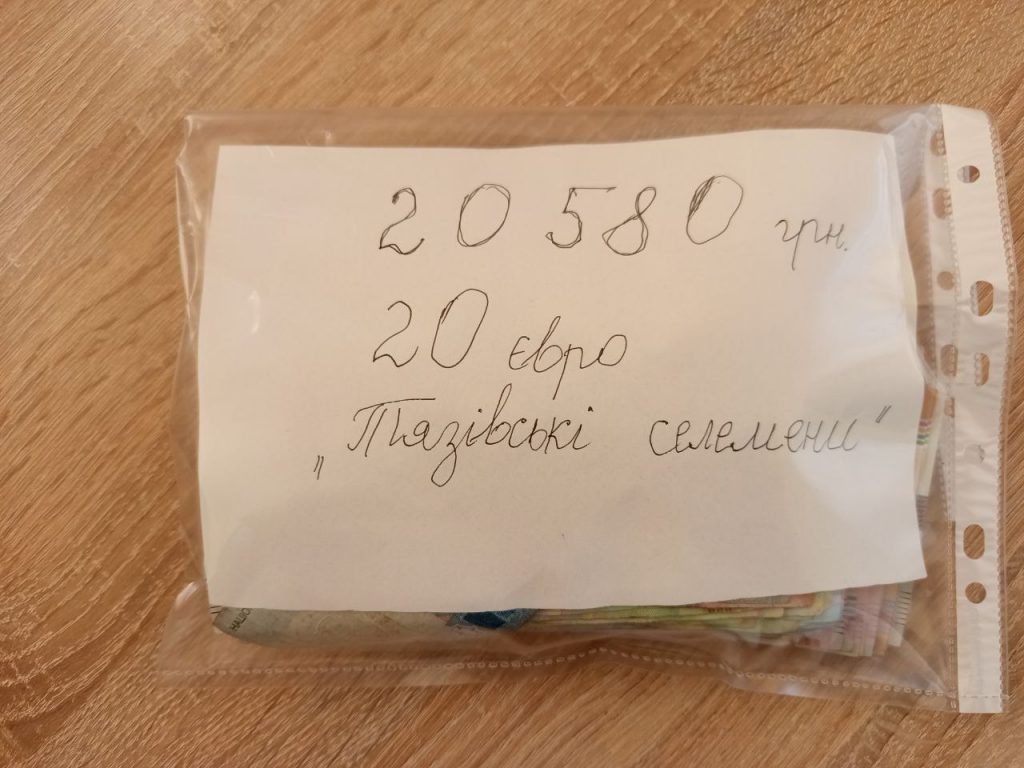 20 580 грн.
20 євро
„Тязівські селемени"